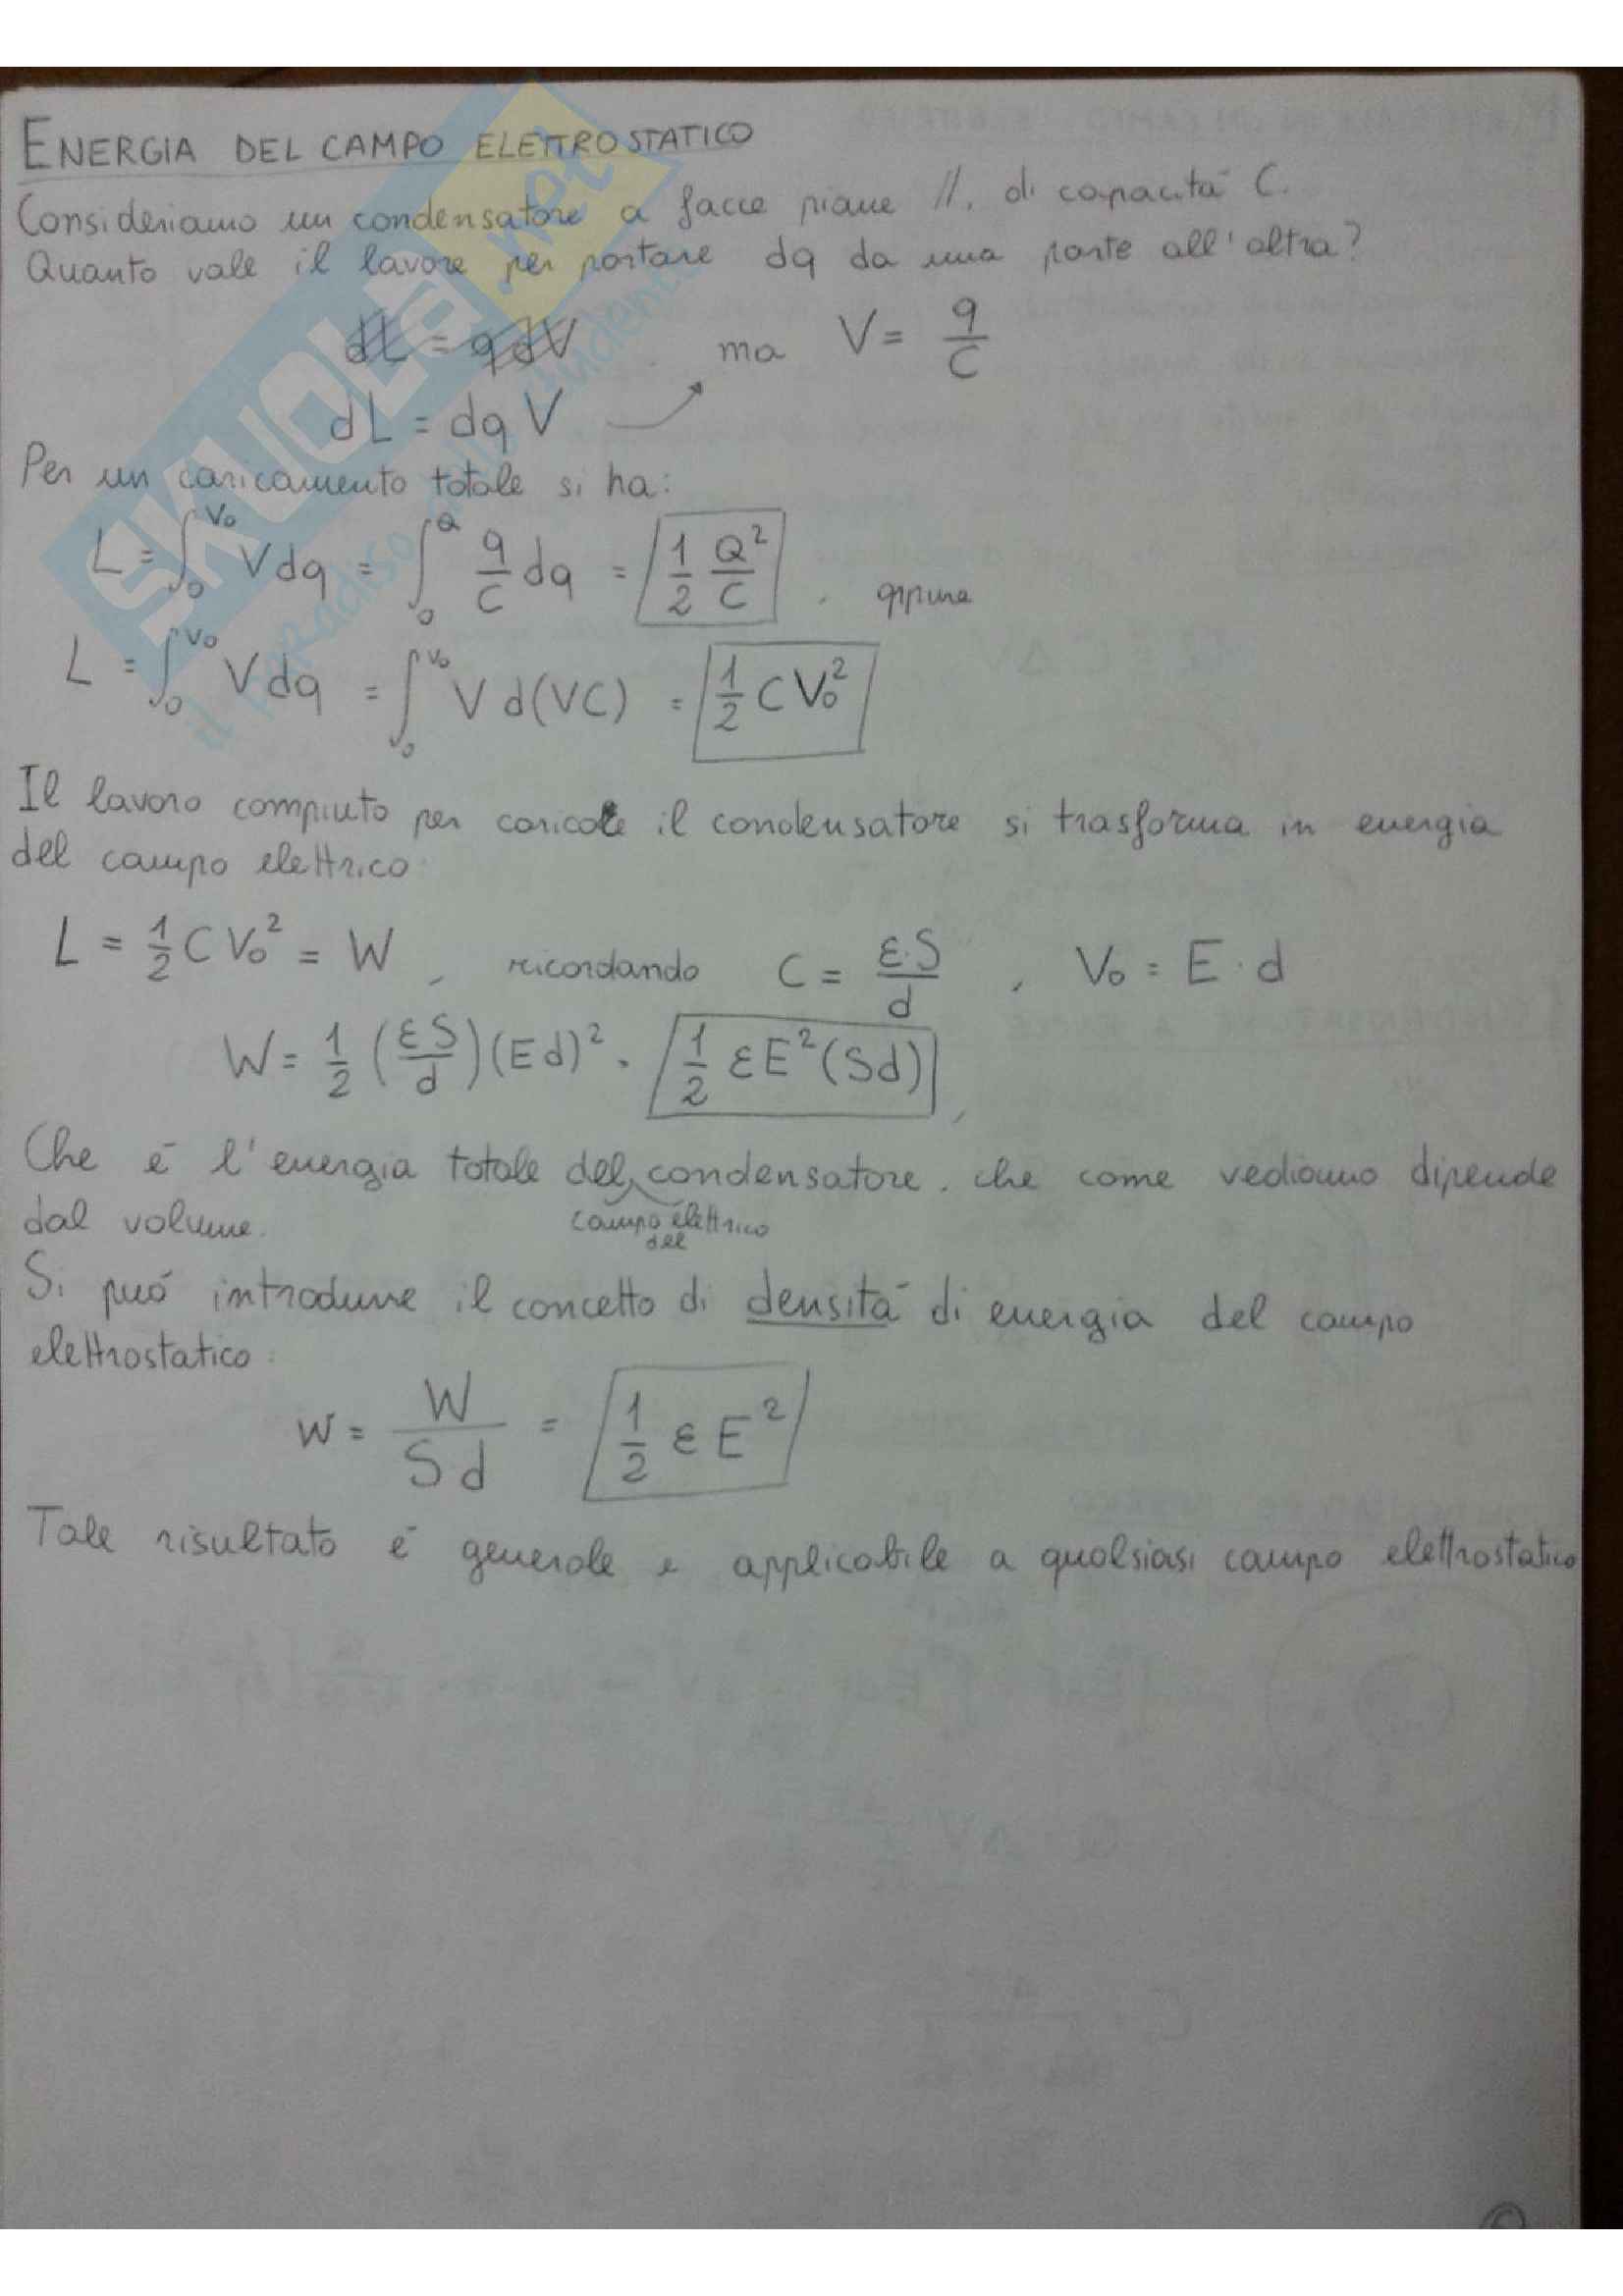 ENERGIA DEL CAMPO ELETTROSTATICO
Consideriamo un condensatore a facce piane //. di capacità C.
Quanto vale il lavore per portare dq da una parte all'altra?
dL = q dV ma V = q/C
dL = dq V
Per un caricamento totale si ha:
L = ∫₀^V₀ V dq = ∫₀^Q q/C dq = 1/2 Q²/C . oppure
L = ∫₀^V₀ V dq = ∫₀^V₀ V d(VC) = 1/2 C V₀²
Il lavoro compiuto per caricare il condensatore si trasforma in energia
del campo elettrico:
L = 1/2 C V₀² = W , ricordando C = ε·S/d , V₀ = E · d
W = 1/2 (εS/d)(Ed)² = 1/2 εE²(Sd) ,
Che é l'energia totale del condensatore. che come vediamo dipende
campo elettrico
del
dal volume.
Si puó introdurre il concetto di densità di energia del campo
elettrostatico:
w = W/S·d = 1/2 ε E²
Tale risultato é generale e applicabile a qualsiasi campo elettrostatico
SKUOLA.net
il paradiso dello studente